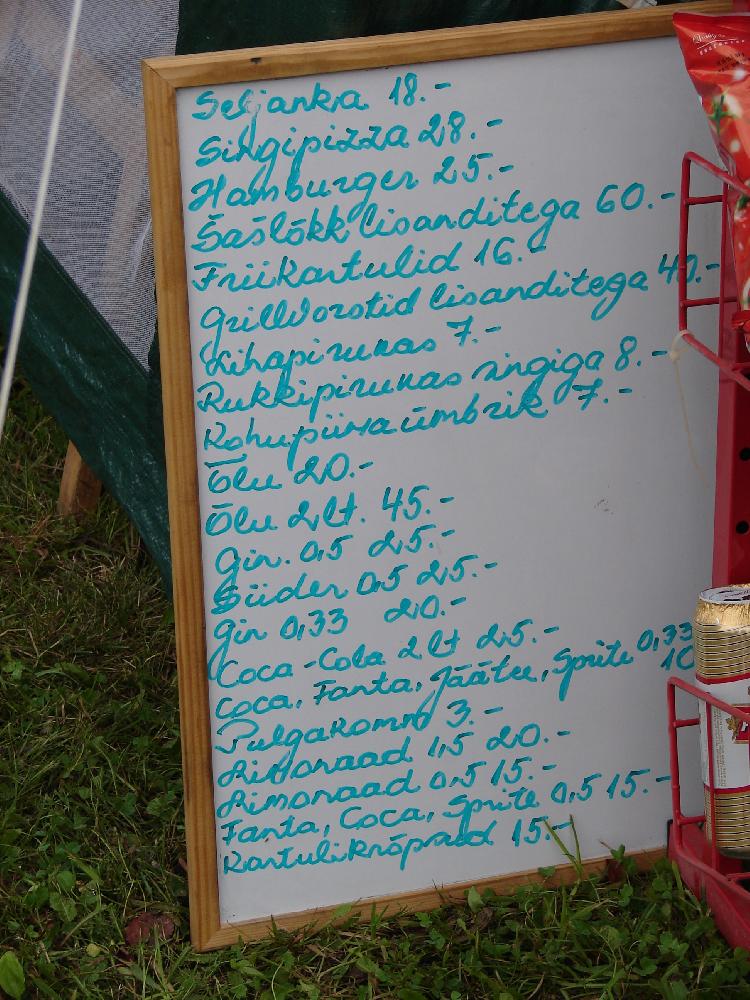 Seljanka 18.-
Singipizza 28.-
Hamburger 25.-
Šašlõkk lisanditega 60.-
Friikartulid 16.-
Grillvorstid lisanditega 40.-
Lihapirukas 7.-
Rukkipirukas singiga 8.-
Kohupiima ümbrik 7.-
Õlu 20.-
Õlu 2 lt. 45.-
Gin. 0,5 25.-
Siider 0,5 25.-
Gin 0,33 20.-
Coca-Cola 2 lt 25.-
Coca, Fanta, Jäätee, Sprite 0,33
10
Pulgakomm 3.-
Limonaad 1,5 20.-
Limonaad 0,5 15.-
Fanta, Coca, Sprite 0,5 15.-
Kartulikrõpsud 15.-